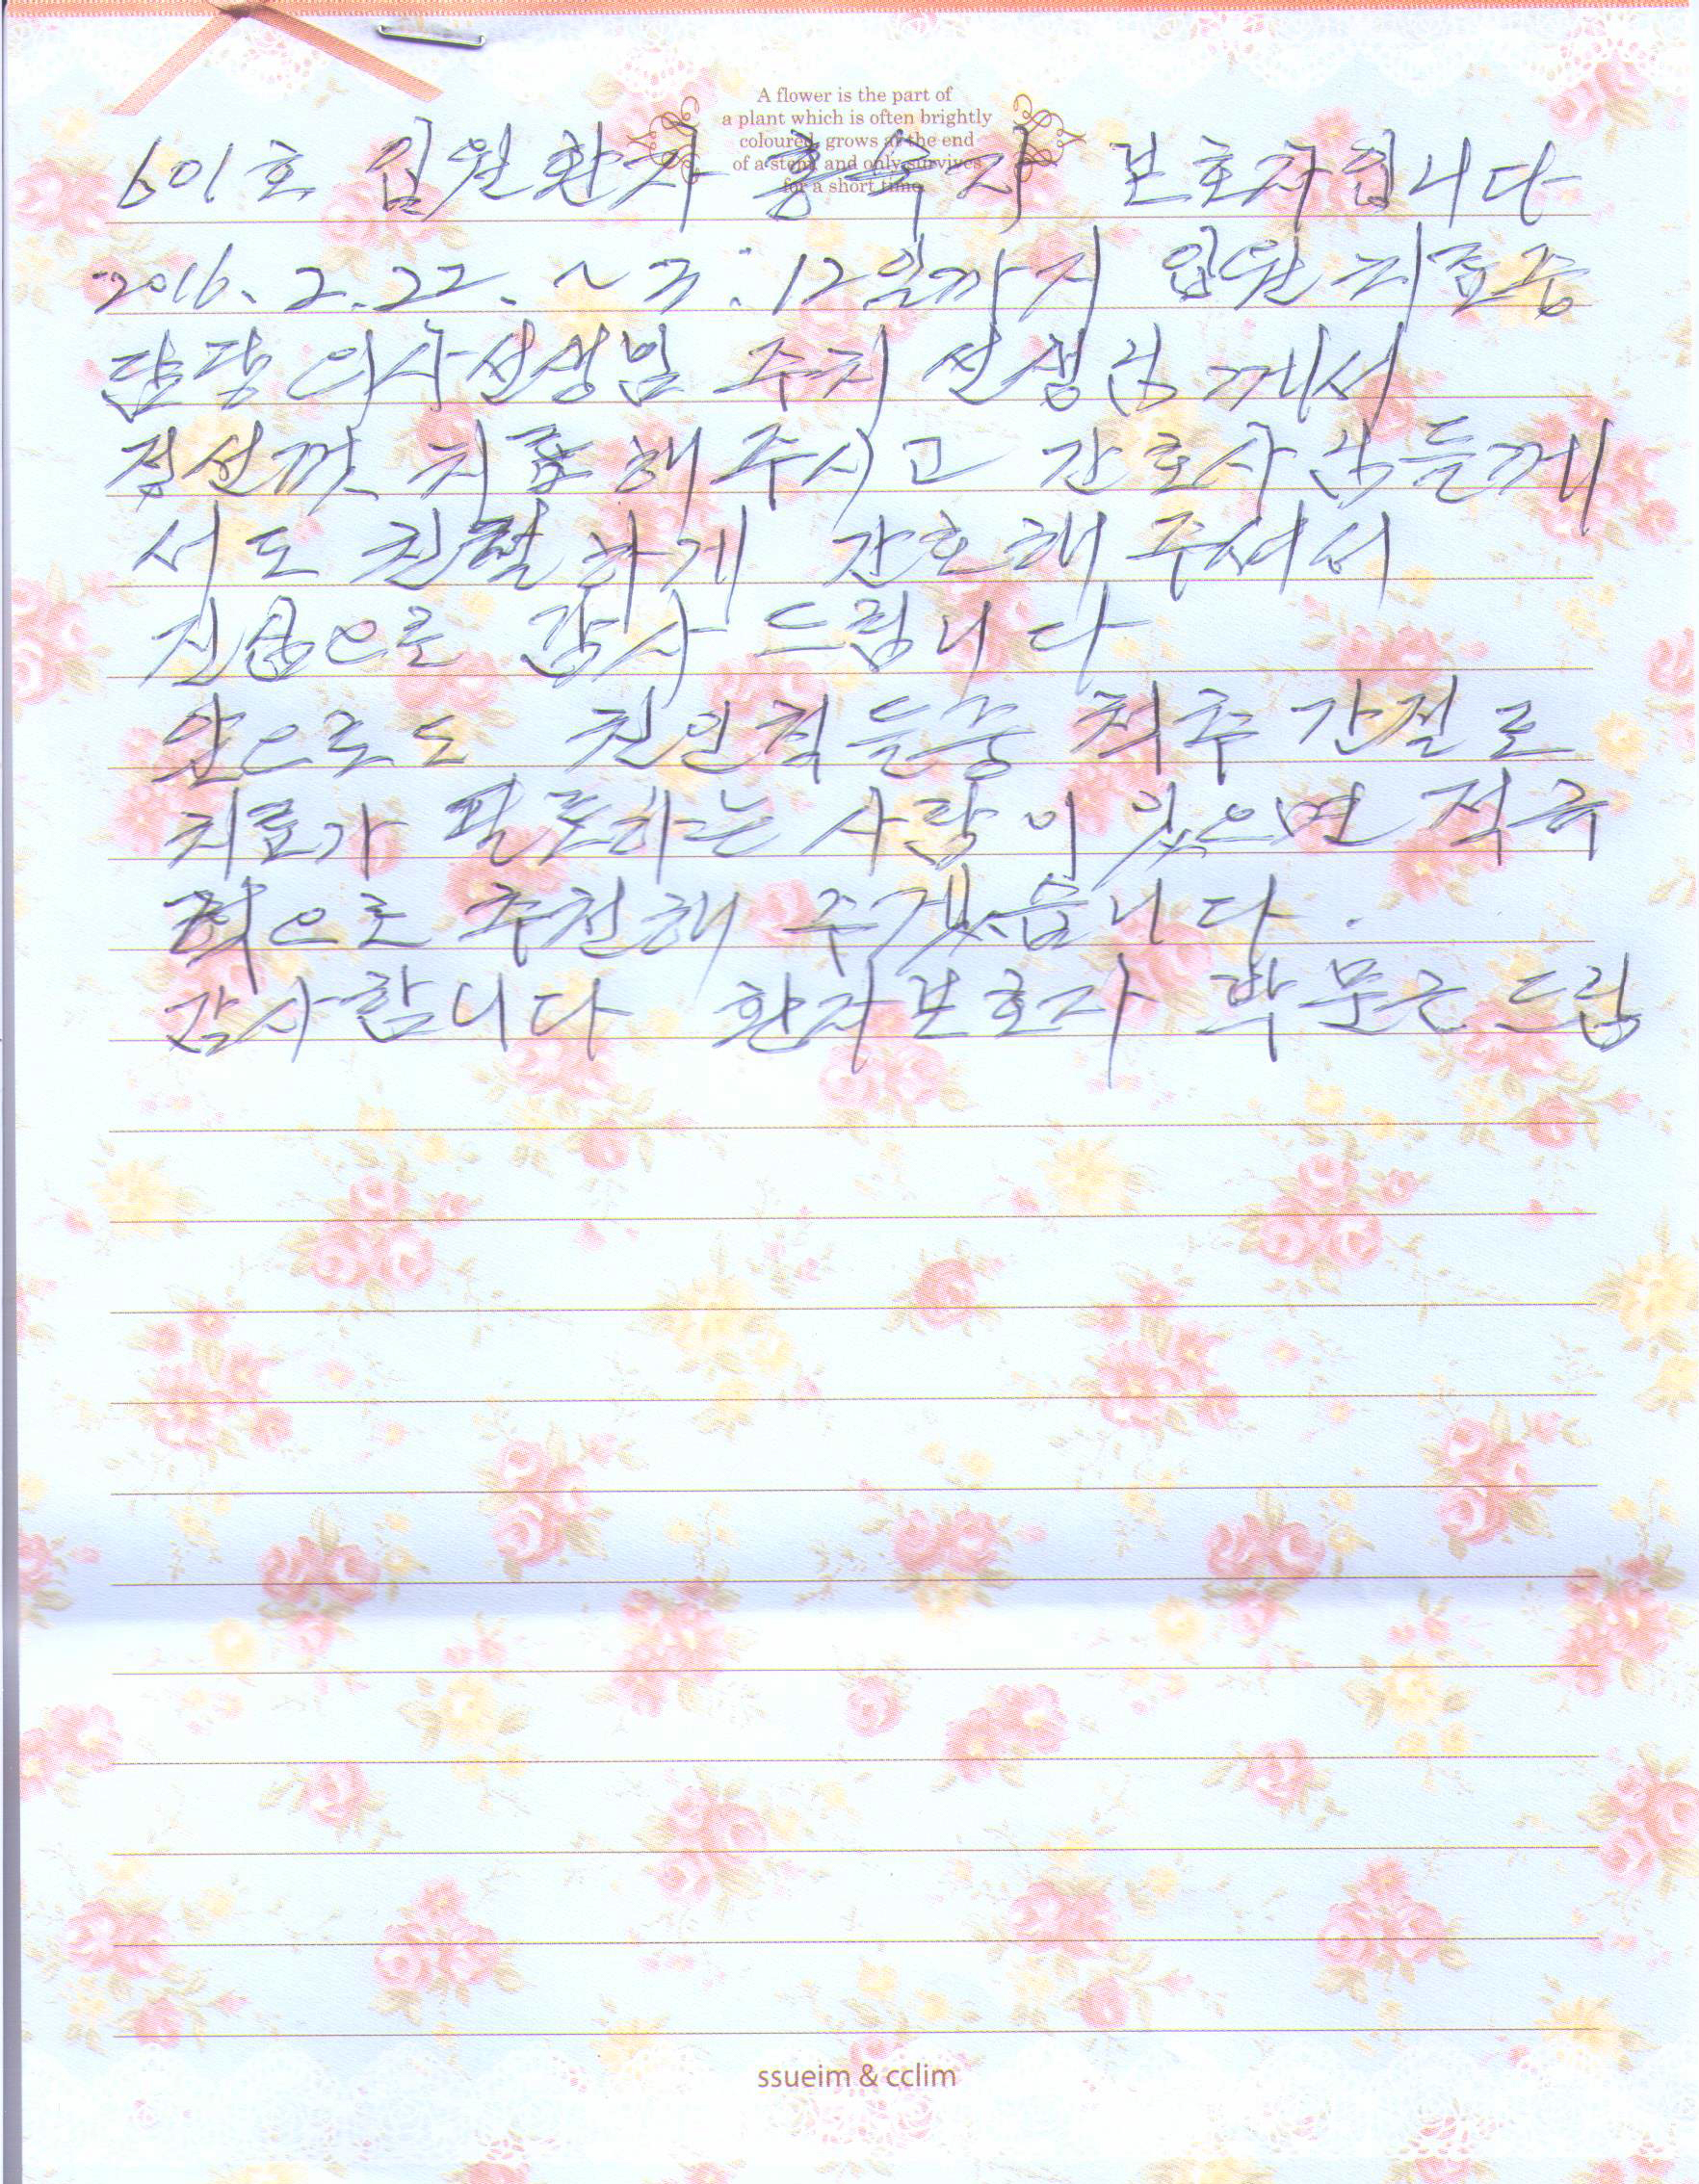 A flower is the part of
a plant which is often brightly
coloured, grows at the end
of a stem, and only survives
for a short time.
601호 입원환자 홍숙자 보호자입니다
2016. 2. 22. ~ 3. 12일까지 입원 치료중
담당 의사선생님 주치 선생님께서
정성껏 치료해 주시고 간호사님들께
서도 친절하게 간호해 주셔서
진심으로 감사 드립니다
앞으로도 친인척들중 척추 관절로
치료가 필요하는 사람이 있으면 적극
적으로 추천해 주겠습니다.
감사합니다 환자보호자 박문근 드림
ssueim & cclim